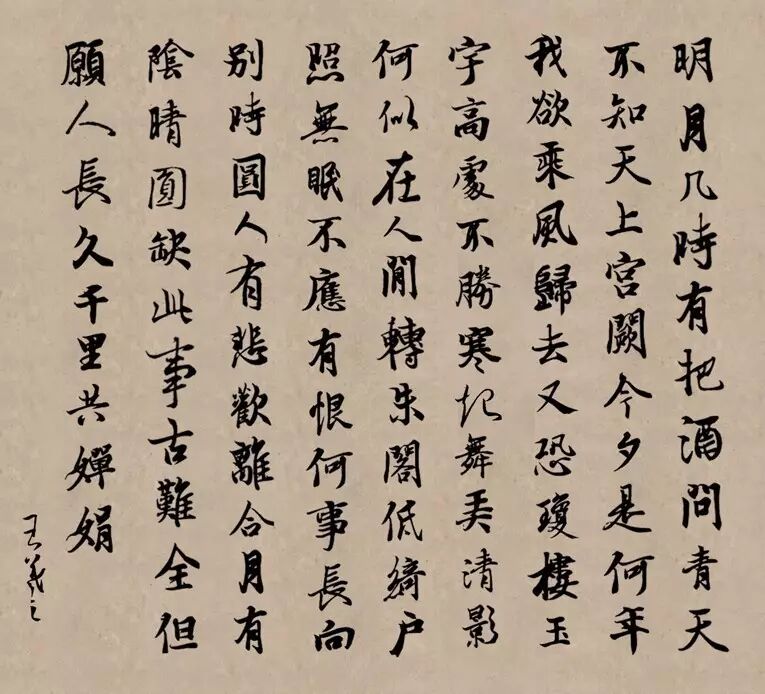 明月几時有把酒問青天
不知天上宮闕今夕是何年
我欲乘風歸去又恐瓊樓玉
宇高處不勝寒起舞弄清影
何似在人間轉朱閣低綺户
照無眠不應有恨何事長向
别時圓人有悲歡離合月有
陰晴圓缺此事古難全但
願人長久千里共嬋娟
王羲之